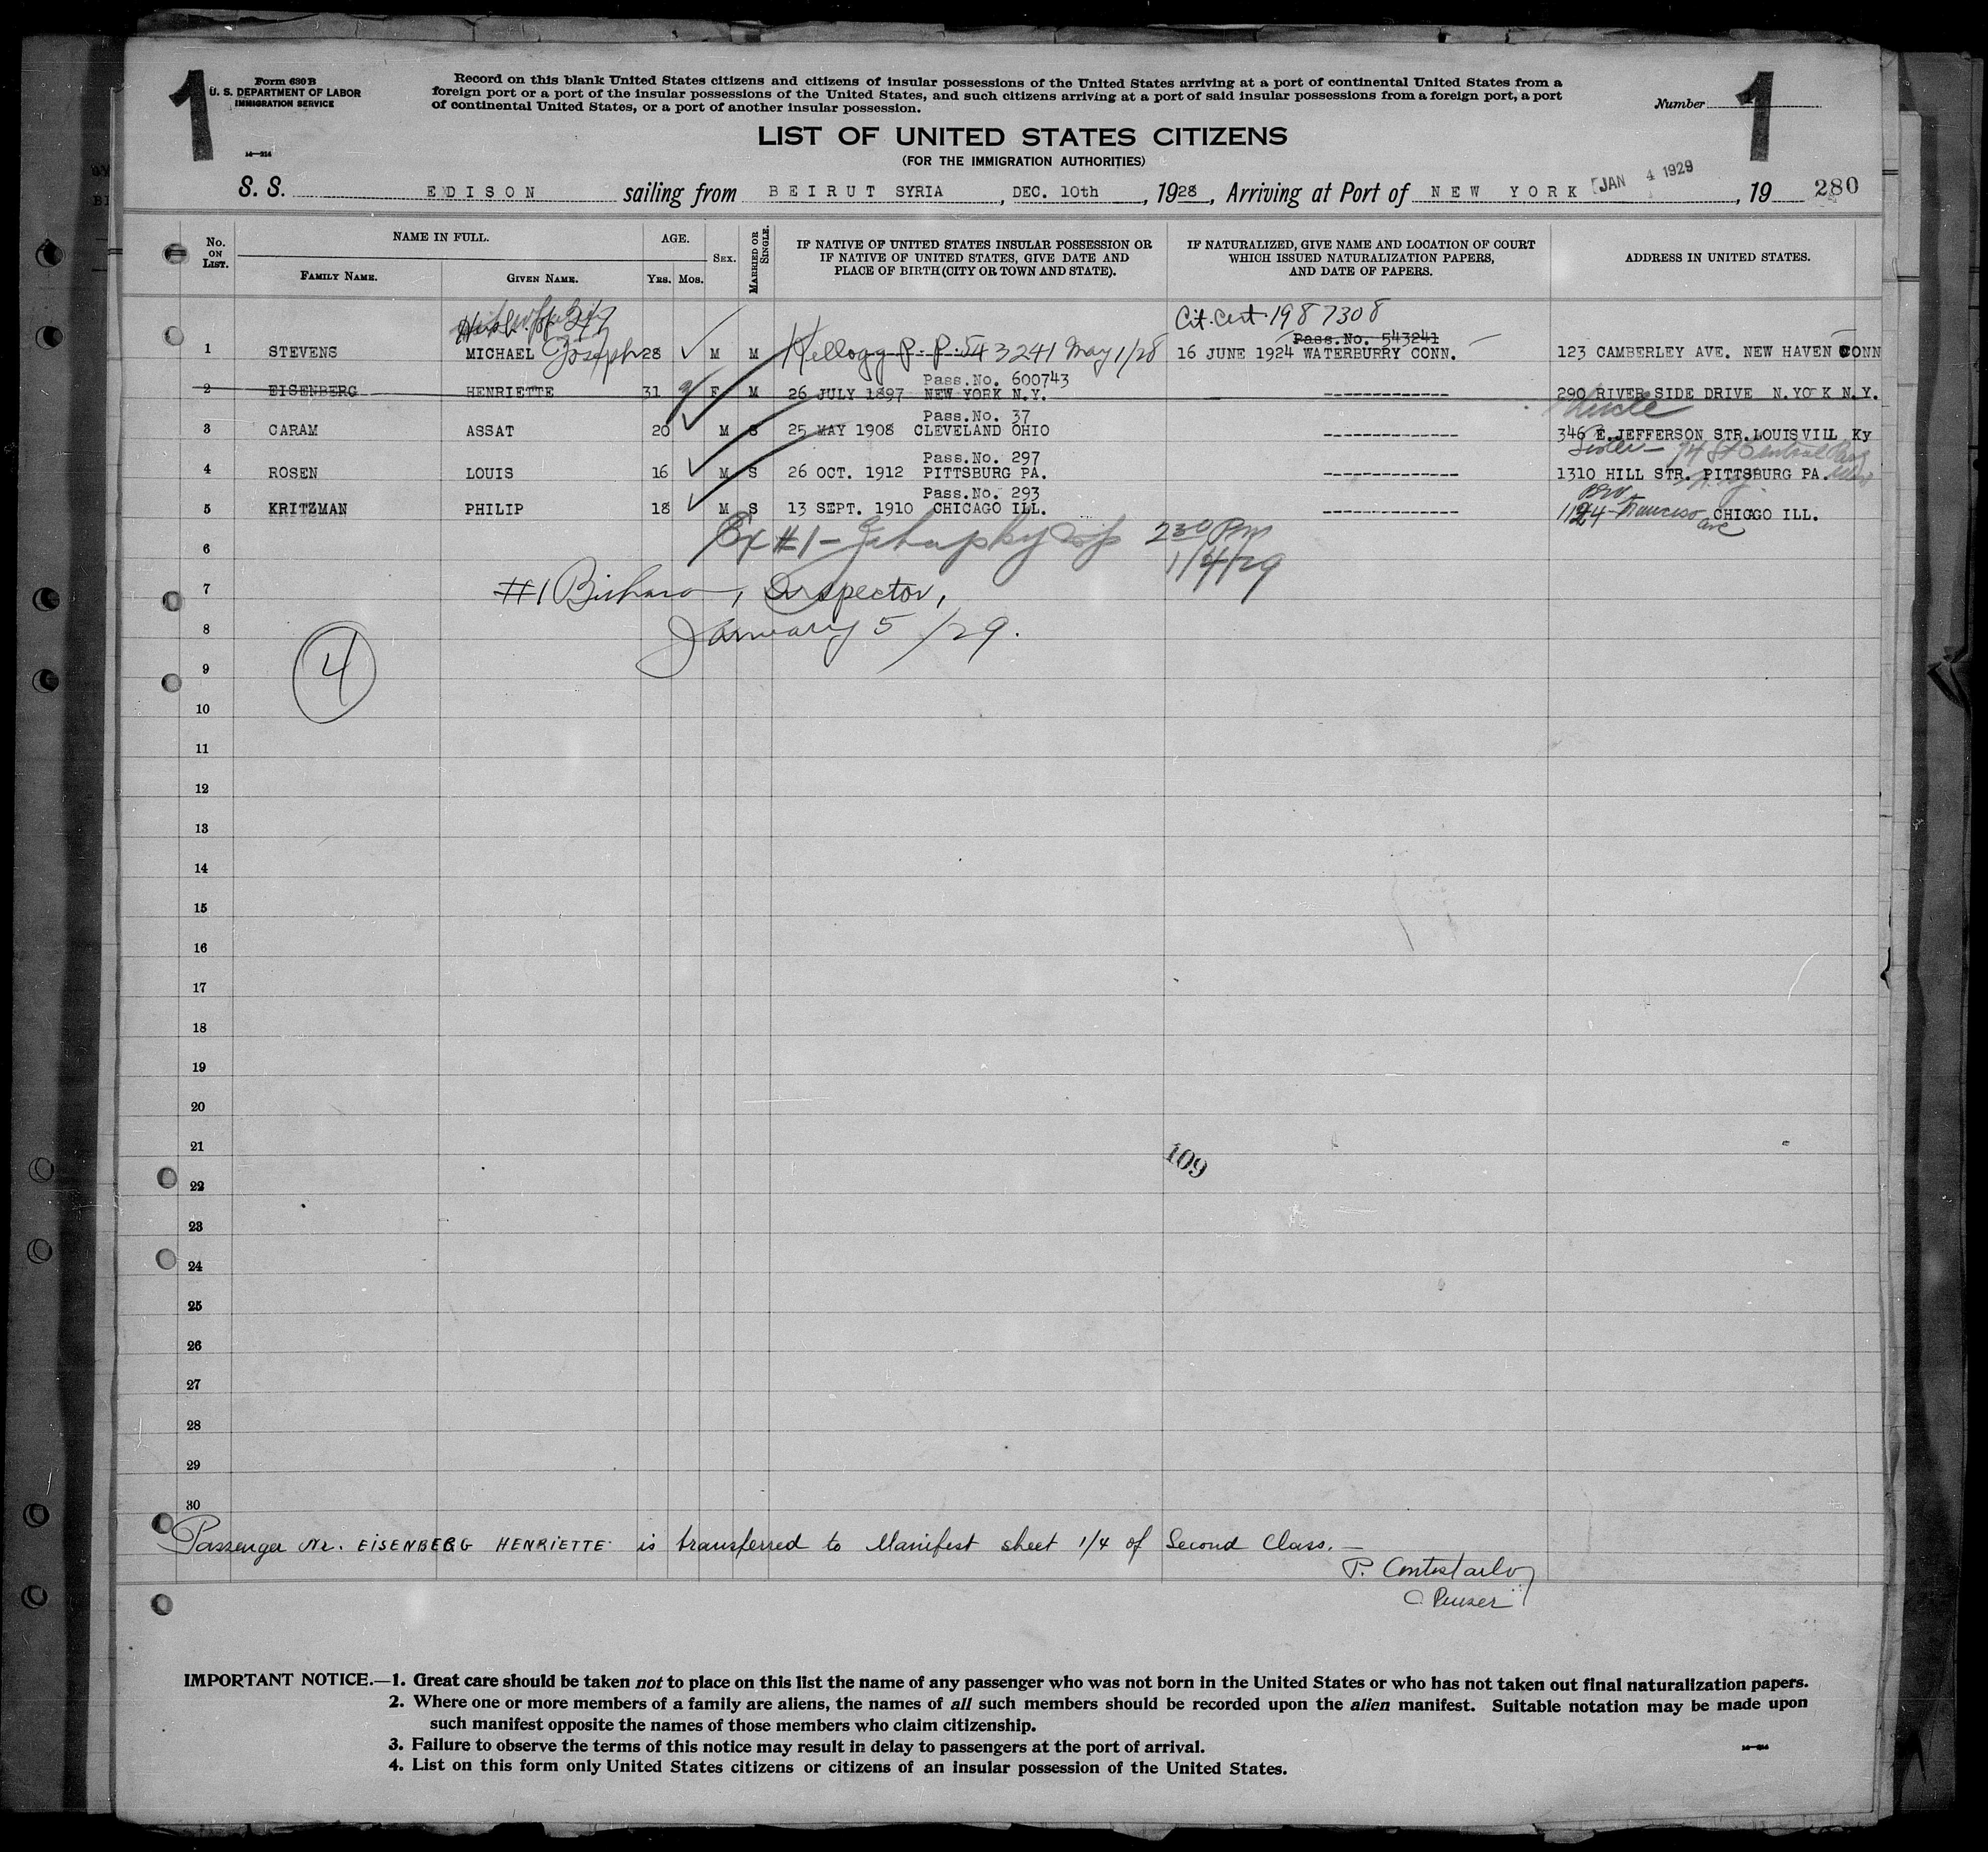 1
Form 630 B
U. S. DEPARTMENT OF LABOR
IMMIGRATION SERVICE
14—314
Record on this blank United States citizens and citizens of insular possessions of the United States arriving at a port of continental United States from a
foreign port or a port of the insular possessions of the United States, and such citizens arriving at a port of said insular possessions from a foreign port, a port
of continental United States, or a port of another insular possession.
Number 1
LIST OF UNITED STATES CITIZENS
(FOR THE IMMIGRATION AUTHORITIES)
S. S. EDISON sailing from BEIRUT SYRIA, DEC. 10th, 1928, Arriving at Port of NEW YORK JAN 4 1929, 19 280
No. ON LIST.
NAME IN FULL.
FAMILY NAME.
GIVEN NAME.
AGE.
YRS. MOS.
SEX.
MARRIED OR SINGLE.
IF NATIVE OF UNITED STATES INSULAR POSSESSION OR
IF NATIVE OF UNITED STATES, GIVE DATE AND
PLACE OF BIRTH (CITY OR TOWN AND STATE).
IF NATURALIZED, GIVE NAME AND LOCATION OF COURT
WHICH ISSUED NATURALIZATION PAPERS,
AND DATE OF PAPERS.
ADDRESS IN UNITED STATES.
Cit. Cert. 1987308
Pass.No. 543241
1 STEVENS MICHAEL Joseph 28 M M Kellogg P.P. 543241 May 1/28 16 JUNE 1924 WATERBURRY CONN. 123 CAMBERLEY AVE. NEW HAVEN CONN
Pass.No. 600743
2 EISENBERG HENRIETTE 31 F M 26 JULY 1897 NEW YORK N.Y. ------------- 290 RIVER SIDE DRIVE N.YORK N.Y.
Pass.No. 37 Uncle
3 CARAM ASSAT 20 M S 25 MAY 1908 CLEVELAND OHIO ------------- 346 E.JEFFERSON STR.LOUISVILL Ky
Pass.No. 297 Sister – 74 St Central Park West
4 ROSEN LOUIS 16 M S 26 OCT. 1912 PITTSBURG PA. ------------- 1310 HILL STR. PITTSBURG PA.
N.Y.
Pass.No. 293 Bro
5 KRITZMAN PHILIP 18 M S 13 SEPT. 1910 CHICAGO ILL. ------------- 1124 Francisco Ave CHICAGO ILL.
6 Ex #1 – 2 30 Pm
1/4/29
7 #1 Inspector,
8 January 5/29.
4
9
10
11
12
13
14
15
16
17
18
19
20
21
109
22
23
24
25
26
27
28
29
30
Passenger Nr. EISENBERG HENRIETTE is transferred to Manifest sheet 1/4 of Second Class. —
P.
Purser
IMPORTANT NOTICE.—1. Great care should be taken not to place on this list the name of any passenger who was not born in the United States or who has not taken out final naturalization papers.
2. Where one or more members of a family are aliens, the names of all such members should be recorded upon the alien manifest. Suitable notation may be made upon
such manifest opposite the names of those members who claim citizenship.
3. Failure to observe the terms of this notice may result in delay to passengers at the port of arrival.
4. List on this form only United States citizens or citizens of an insular possession of the United States.
14—314